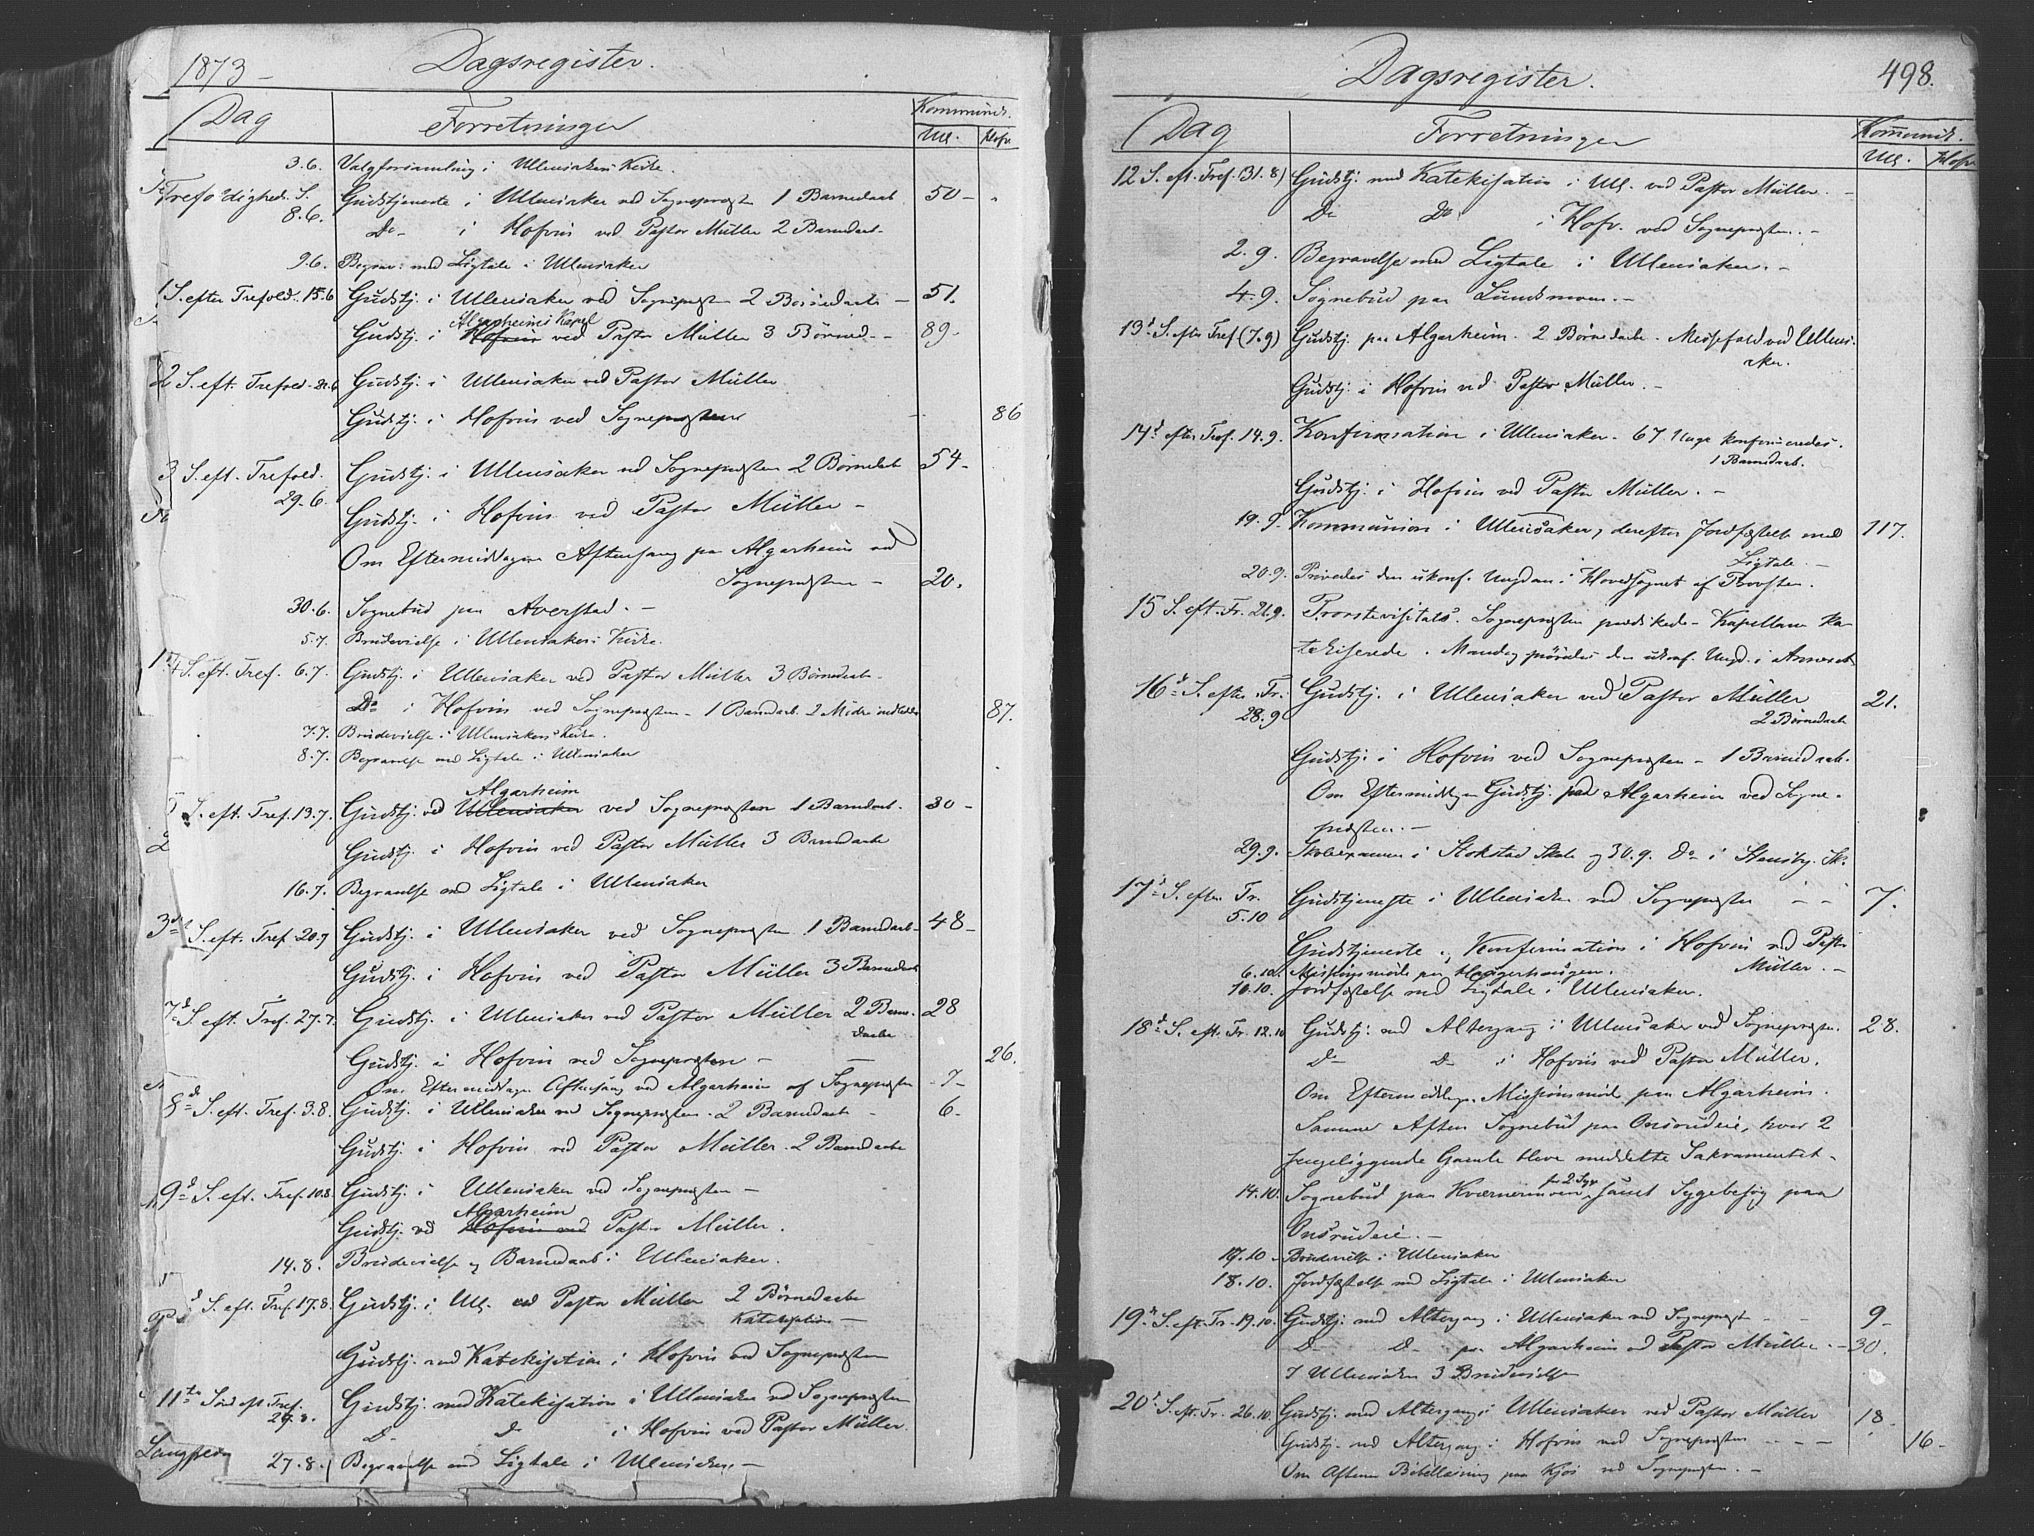 1873 - Dagsregister.
Dag Forretninger Kommunik.
Ull. Hofv.
3.6. Valgforsamling i Ullensakers Kirke.
Trefoldigheds S. Gudstjeneste i Ullensaker ved Sognepræsten 1 Barnedaab. 50 -
8.6. Do - i Hofvin ved Pastor Müller 2 Barnedaab -
9.6. Begrav: med Ligtale i Ullensaker
1 S. efter Trefold. 15.6 Gudstj. i Ullensaker ved Sognepræsten 2 Børnedaab - 51.
Algarheims Kapel
Gudstj. i Hofvin ved Pastor Müller 3 Børned. - 89 -
2 S. eft. Trefold. 22.6 Gudstj. i Ullensaker ved Pastor Müller
Gudstj. i Hofvin ved Sognepræsten - 86
3 S. eft. Trefold. Gudstj. i Ullensaker ved Sognepræsten 2 Børnedaab 54 -
29.6. Gudstj. i Hofvin ved Pastor Müller -
Om Eftermiddagen Aftensang paa Algarheim ved
Sognepræsten - 20.
30.6. Sognebud paa Averstad. -
5.7. Brudevielse i Ullensakers Kirke.
4 S. eft. Tref. 6.7. Gudstj. i Ullensaker ved Pastor Müller 3 Børnedaab -
Do i Hofvin ved Sognepræsten - 1 Barnedaab. 2 Mødre indledede 87.
7.7. Brudevielse i Ullensakers Kirke.
8.7. Begravelse med Ligtale i Ullensaker
Algarheim
5 S. eft. Tref. 13.7. Gudstj. ved Ullensaker ved Sognepræsten 1 Barnedaab. 30 -
Gudstj. i Hofvin ved Pastor Müller 3 Barnedaabe
16.7. Begravelse med Ligtale i Ullensaker
S. eft. Tref. 20.7 Gudstj. i Ullensaker ved Sognepræsten 1 Barnedaab - 48 -
Gudstj. i Hofvin ved Pastor Müller 3 Barnedaab
7d S. eft. Tref. 27.7. Gudstj. i Ullensaker ved Pastor Müller 2 Barne- 28
daabe
Gudstj. i Hofvin ved Sognepræsten - 26.
Om Eftermiddagen Aftensang ved Algarheim af Sognepræsten - 7 -
8d S. eft. Tref. 3.8. Gudstj. i Ullensaker ved Sognepræsten. 2 Barnedaab - 6 -
Gudstj. i Hofvin ved Pastor Müller. 2 Barnedaabe
9d S. eft. Tref. 10.8. Gudstj. i Ullensaker ved Sognepræsten -
Algarheim
Gudstj. ved Hofvin ved Pastor Müller.
14.8. Brudevielse og Barnedaab i Ullensaker.
S. eft. Tref. 17.8. Gudstj. i Ull. ved Pastor Müller 2 Børnedaabe
Katekisation -
Gudstj. med Katekisation i Hofvin ved Sognepræsten
11te Sønd eft. Tref. Gudstj. med Katekisation i Ullensaker ved Sognepræsten
24.8. D - D - i Hofvin ved Pastor Müller.
27.8. Begravelse med Ligtale i Ullensaker. -
Dagsregister. 498.
Dag Forretninger Kommunik.
Ull. Hofv.
12 S. eft. Tref. (31.8) Gudstj. med Katekisation i Ull. ved Pastor Müller. -
Do Do i Hofv. ved Sognepræsten. -
2.9. Begravelse med Ligtale i Ullensaker. -
4.9. Sognebud paa Lundsmoen. -
13d S. efter Tref (7.9) Gudstj. paa Algarheim. 2 Børnedaabe. Messefald ved Ullensa-
ker.
Gudstj. i Hofvin ved Pastor Müller. -
14d efter Tref. 14.9. Konfirmation i Ullensaker - 67 Unge konfirmeredes.
1 Barnedaab.
Gudstj. i Hofvin ved Pastor Müller. -
19.9. Kommunion i Ullensaker, derefter Jordfæstelse med 117.
Ligtale. -
20.9. Prøvedes den ukonf. Ungdom i Hovedsognet af Provsten.
15 S. eft. Fr. 21.9. Provstevisitats. Sognepræsten prædikede - Kapellanen ka-
tekiserede. Mandag prøvedes den ukonf. Ungd. i Annexet
16d S. efter Tr. Gudstj. i Ullensaker ved Pastor Müller 21.
28.9 2 Børnedaab
Gudstj. i Hofvin ved Sognepræsten - 1 Barnedaab.
Om Eftermiddagen Gudstj. paa Algarheim ved Sogne-
præsten. -
29.9. Skoleexamen i Stokstad Skole og 30.9. Do i Stensby Sk.
17d S. efter Tr. Gudstjeneste i Ullensaker ved Sognepræsten - - 7.
5.10 Gudstjeneste og Konfirmation i Hofvin ved Pastor
Müller. -
6.10. Missionsmøde paa Haugerhaugen.
10.10. Jordfæstelse med Ligtale i Ullensaker.
18d S. eft. Tr. 12.10 Gudstj. med Altergang i Ullensaker ved Sognepræsten. 28.
D - D - i Hofvin ved Pastor Müller.
Om Eftermiddagen Missionsmøde paa Algarheim.
Samme Aften Sognebud paa Onsrudeie, hvor 2
sengeliggende Gamle bleve meddelte Sakramentet -
for 2 Syge
14.10. Sognebud paa Kværnermoen, samt Sygebesøg paa
Onsrudeie. -
17.10 - Brudevielse i Ullensaker
18.10. Jordfæstelse med Ligtale i Ullensaker
19n S. eft. Tr. 19.10. Gudstj. med Altergang i Ullensaker ved Sognepræst - - 9 -
D - D - paa Algarheim ved Pastor Müller. - 30.
I Ullensaker 3 Brudevielser
20d S. eft. Tr. 26.10. Gudstj. med Altergang i Ullensaker ved Pastor Müller 18.
Gudstj. med Altergang i Hofvin ved Sognepræsten - - - 16 -
Om Aftenen Bibellæsning paa Kjos ved Sognepræsten. -